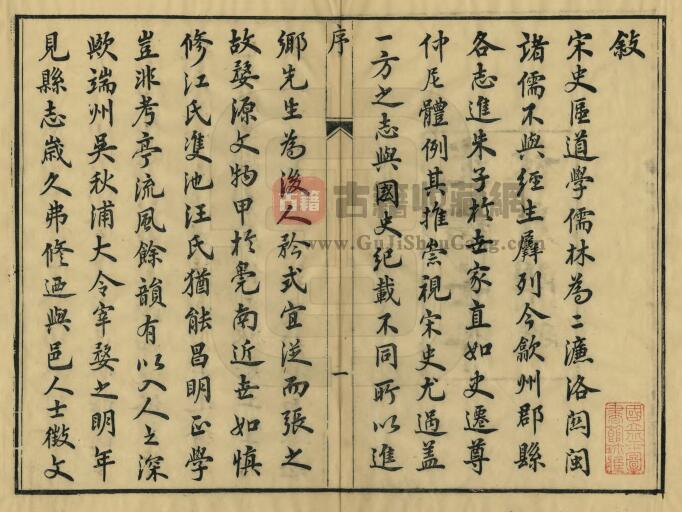 敍
宋史區道學儒林為二濂洛関閩
諸儒不與經生羣列今歙州郡縣
各志進朱子於世家直如史遷尊
仲尼體例其推崇視宋史尤過盖
一方之志與國史紀載不同所以進
序
一
鄉先生為後人矜式宜從而張之
故婺源文物甲於皖南近世如慎
修江氏雙池汪氏猶能昌明正學
豈非考亭流風餘韻有以入人之深
歟端州吳秋浦大令宰婺之明年
見縣志歲久弗修迺與邑人士徵文
古籍
古籍收藏網
www.GuJiShouCang.com